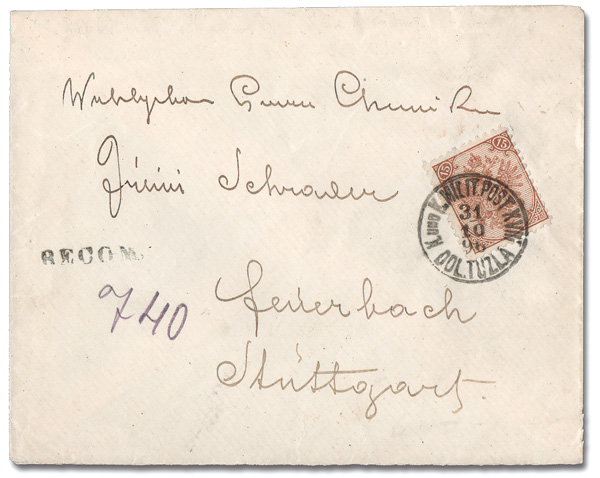 Wohlgeboren Herrn Chemiker
Julius Schrader
15
15
K. und K. MILIT. POST XVIII
31
10
96
DOL. TUZLA
RECOM.
740
Feuerbach
Stuttgart.